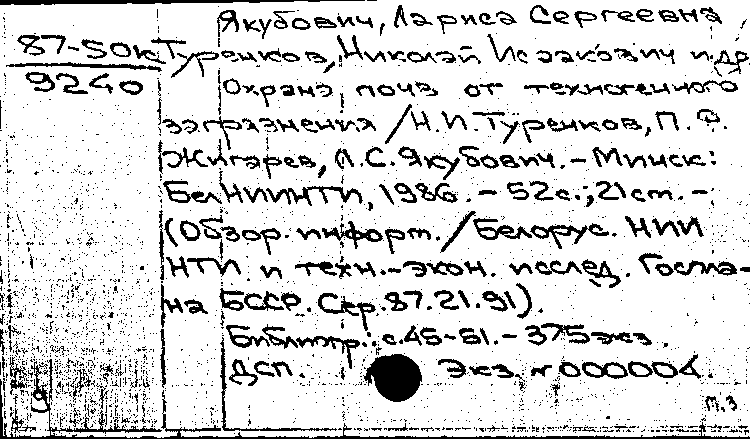 Якубович, Лариса Сергеевна
87-50к Туренков, Николай Исаакович и др.
9240 Охрана почв от техногенного
загрязнения / Н.И. Туренков, П.Ф.
Жигарев, Л.С. Якубович. - Минск:
БелНИИНТИ, 1986. - 52с.; 21 ст. -
(Обзор. информ. / Белорус. НИИ
НТИ и техн.-экон. исслед. Госпла-
на БССР. Сер. 87.21.91).
Библиогр.: с.45-51. - 375 экз.
ДСП. Экз. № 000004.
9
м.3